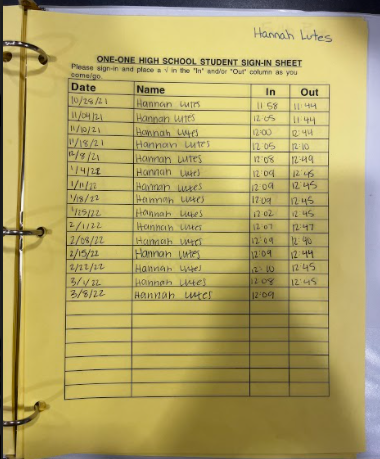 Hannah Lutes
ONE-ONE HIGH SCHOOL STUDENT SIGN-IN SHEET
Please sign-in and place a √ in the "In" and/or "Out" column as you
come/go.
Date Name In Out
10/28/21 Hannah Lutes 11:58 11:44
11/04/21 Hannah Lutes 12:05 11:44
11/10/21 Hannah Lutes 12:00 12:44
11/18/21 Hannah Lutes 12:05 12:10
12/8/21 Hannah Lutes 12:08 12:49
1/4/22 Hannah Lutes 12:09 12:45
1/11/22 Hannah Lutes 12:09 12:45
1/18/22 Hannah Lutes 12:09 12:45
1/25/22 Hannah Lutes 12:02 12:45
2/1/22 Hannah Lutes 12:07 12:47
2/08/22 Hannah Lutes 12:09 12:40
2/15/22 Hannah Lutes 12:09 12:44
2/22/22 Hannah Lutes 12:10 12:45
3/1/22 Hannah Lutes 12:08 12:45
3/8/22 Hannah Lutes 12:09